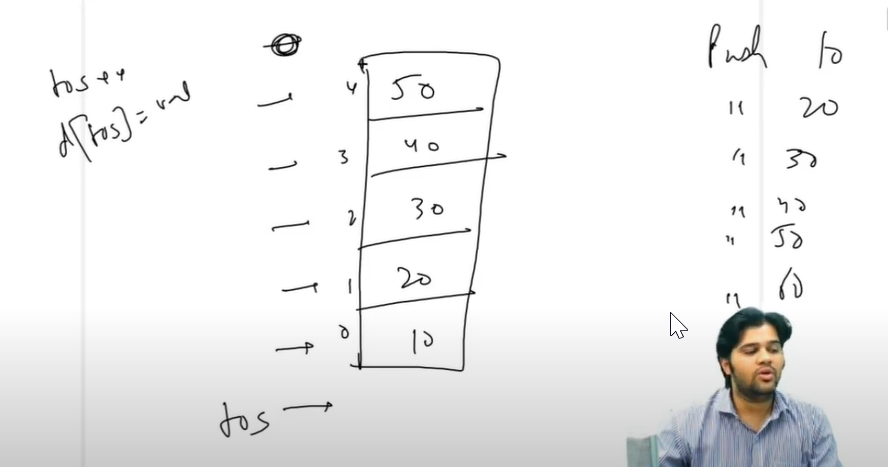 tos++
d[tos] = val
4 50
3 40
2 30
1 20
0 10
tos
Push 10
" 20
" 30
" 40
" 50
" 60